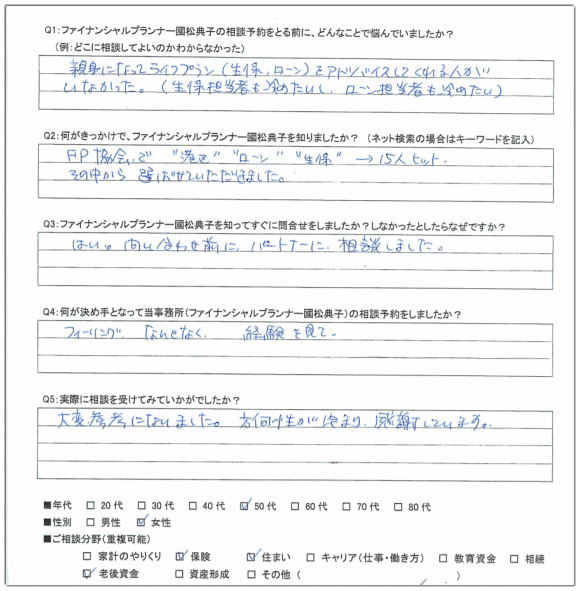 Q1:ファイナンシャルプランナー國松典子の相談予約をとる前に、どんなことで悩んでいましたか?
(例:どこに相談してよいのかわからなかった)
親身になってライフプラン(生保、ローン)をアドバイスしてくれる人が
いなかった。(生保担当者も冷めたいし、ローン担当者も冷めたい)
Q2:何がきっかけで、ファイナンシャルプランナー國松典子を知りましたか? (ネット検索の場合はキーワードを記入)
FP協会で "港区" "ローン" "生保" →15人ヒット。
その中から 選ばせていただきました。
Q3:ファイナンシャルプランナー國松典子を知ってすぐに問合せをしましたか?しなかったとしたらなぜですか?
はい。問い合わせ前に、パートナーに、相談しました。
Q4:何が決め手となって当事務所(ファイナンシャルプランナー國松典子)の相談予約をしましたか?
フィーリング、なんとなく、 経験を見て。
Q5:実際に相談を受けてみていかがでしたか?
大変、参考になりました。方向性が決まり、感謝しています。
■年代 □20代 □30代 □40代 ☑50代 □60代 □70代 □80代
■性別 □男性 ☑女性
■ご相談分野(重複可能)
□家計のやりくり ☑保険 ☑住まい □キャリア(仕事・働き方) □教育資金 □相続
☑老後資金 □資産形成 □その他( )